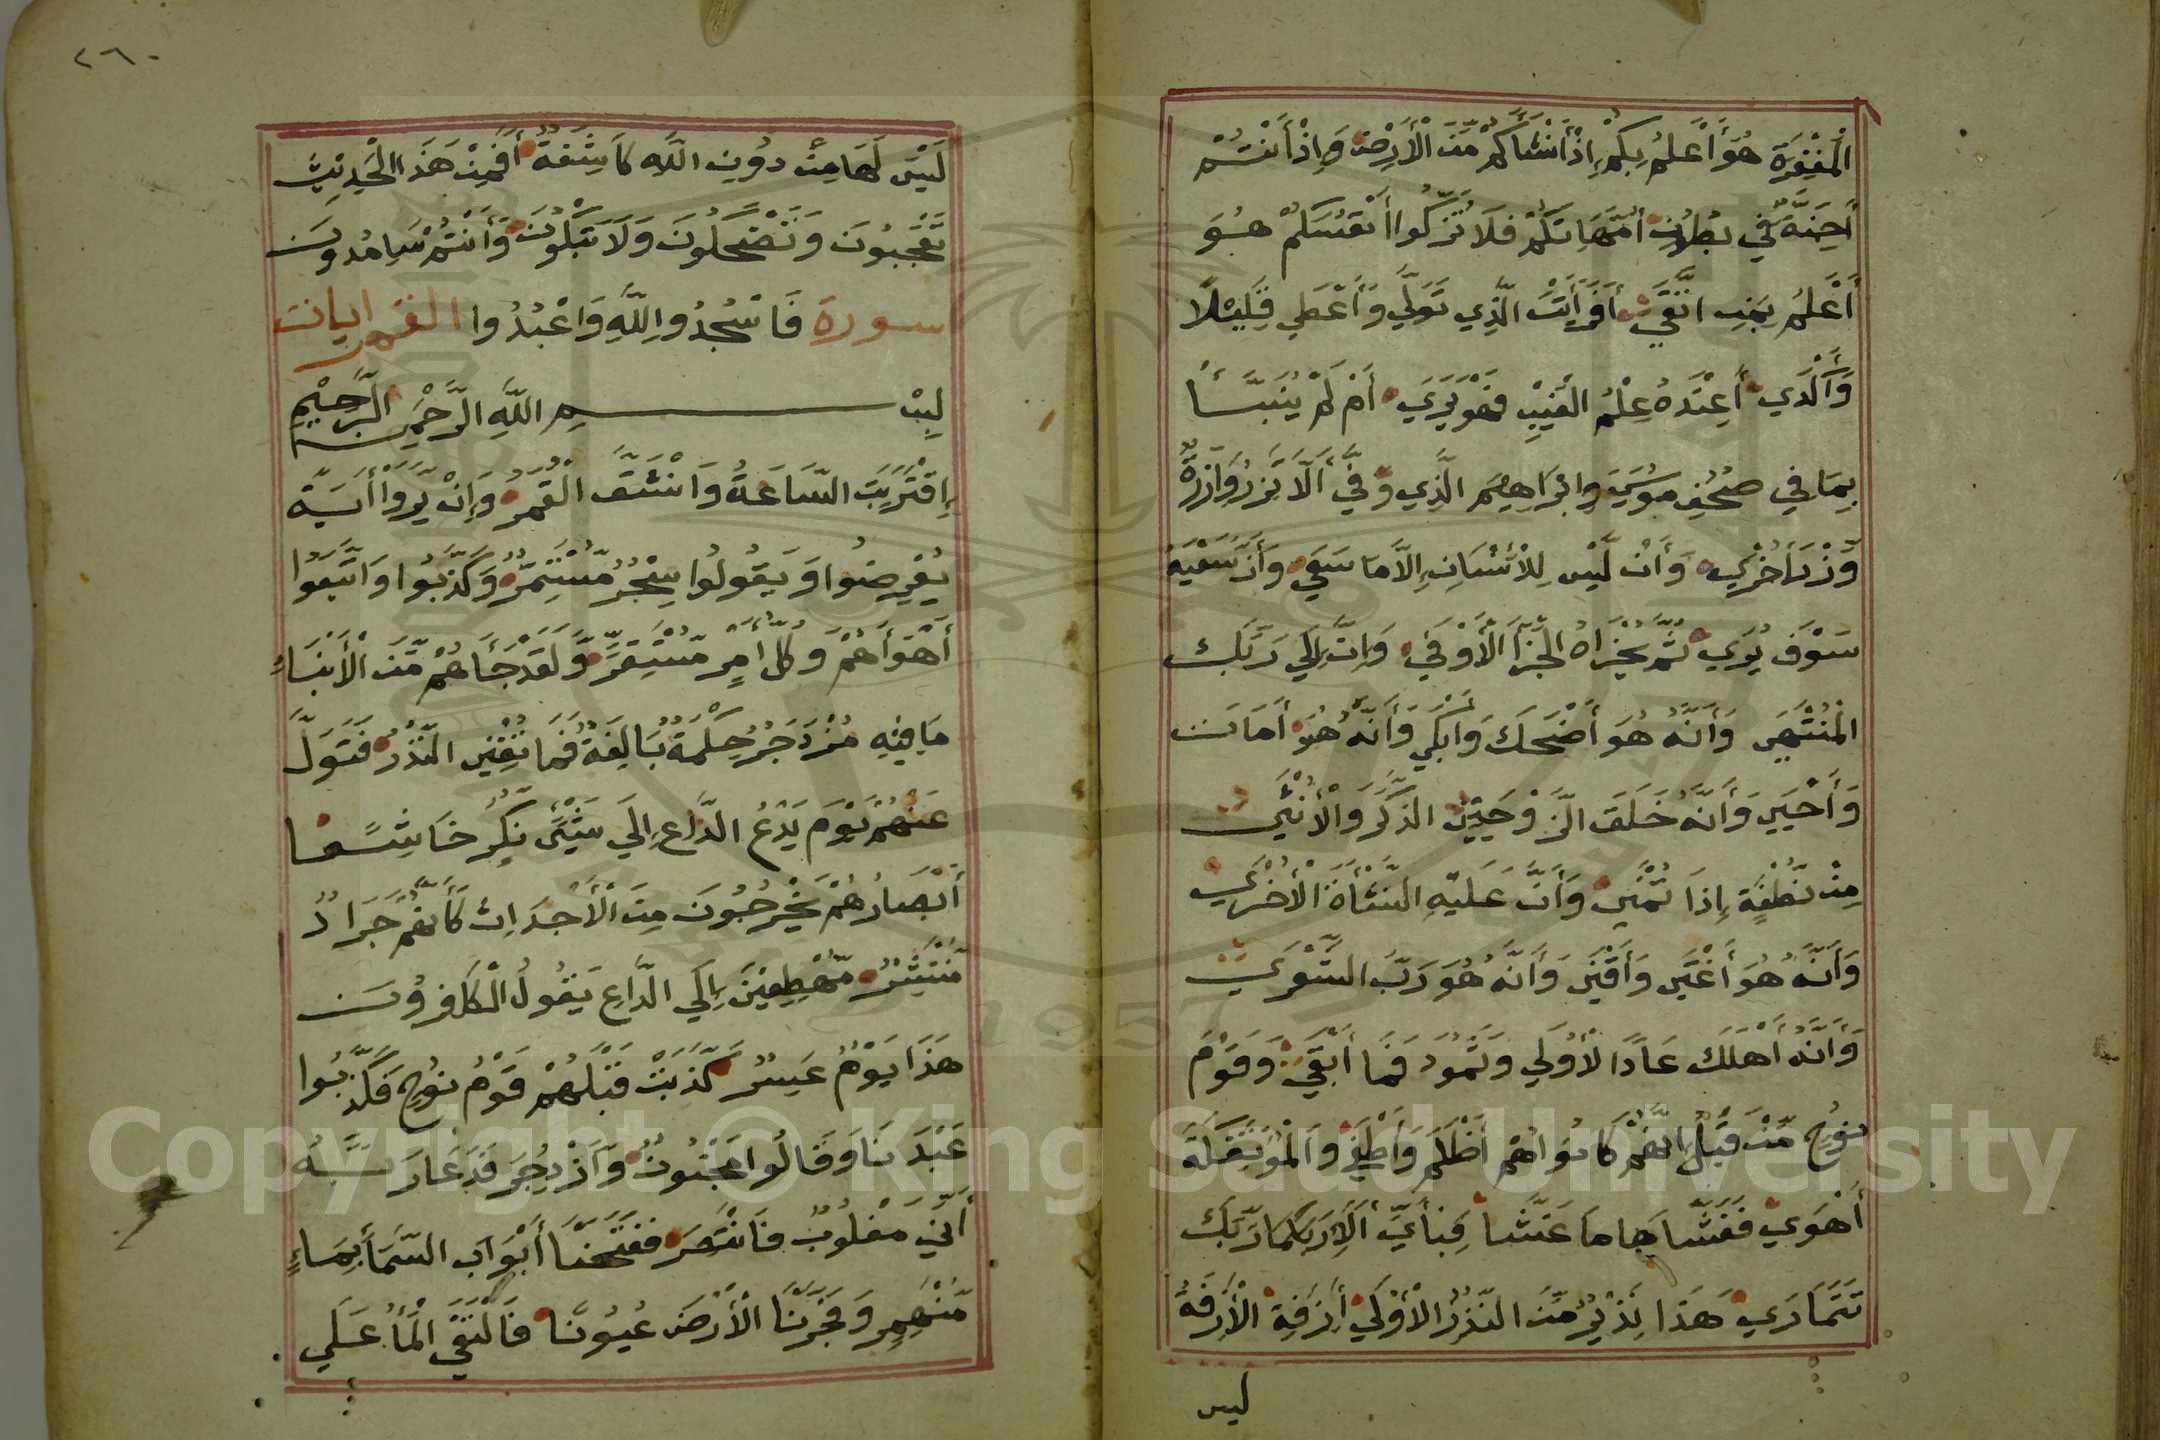 الْمَغْفِرَةِ هُوَ أَعْلَمُ بِكُمْ إِذْ أَنْشَأَكُمْ مِّنَ الْأَرْضِ وَإِذْ أَنْتُمْ
أَجِنَّةٌ فِي بُطُونِ أُمَّهَاتِكُمْ فَلَا تُزَكُّوا أَنْفُسَكُمْ هُوَ
أَعْلَمُ بِمَنِ اتَّقَي أَفَرَأَيْتَ الَّذِي تَوَلَّي وَأَعْطَي قَلِيْلًا
وَأَكْدَي أَعِنْدَهُ عِلْمُ الْغَيْبِ فَهُوَ يَرَي أَمْ لَمْ يُنَبَّأْ
بِمَا فِي صُحُفِ مُوسَي وَإِبْرَاهِيمَ الَّذِي وَفَّي أَلَّا تَزِرُ وَازِرَةٌ
وِّزْرَ أُخْرَي وَأَنْ لَّيْسَ لِلْأِنْسَانِ إِلَّا مَا سَعَي وَأَنَّ سَعْيَهُ
سَوْفَ يُرَي ثُمَّ يُجْزَاهُ الْجَزَآ الْأَوْفَي وَإِنَّ إِلَي رَبِّكَ
الْمُنْتَهَي وَأَنَّهُ هُوَ أَضْحَكَ وَأَبْكَي وَأَنَّهُ هُوَ أَمَاتَ
وَأَحْيَي وَأَنَّهُ خَلَقَ الزَّوْجَيْنِ الذَّكَرَ وَالْأُنْثَي
مِنْ نُّطْفَةٍ إِذَا تُمْنَي وَأَنَّ عَلَيْهِ النَّشْأَةَ الْأُخْرَي
وَأَنَّهُ هُوَ أَغْنَي وَأَقْنَي وَأَنَّهُ هُوَ رَبُّ الشِّعْرَي
وَأَنَّهُ أَهْلَكَ عَادًا الْأُولَي وَثَمُودَ فَمَا أَبْقَي وَقَوْمَ
نُوحٍ مِّنْ قَبْلُ إِنَّهُمْ كَانُوا هُمْ أَظْلَمَ وَأَطْغَي وَالْمُؤْتَفِكَةَ
أَهْوَي فَغَشَّاهَا مَا غَشَّا فَبِأَيِّ أَلَآءِ رَبِّكَمَا رَبِّكَ
تَتَمَارَي هَذَا نَذِيْرٌ مِّنَ النُّذُرِ الْأُوْلَي أَزِفَةِ الْأَزِفَةُ
ليس
٢٦٠
لَيْسَ لَهَا مِنْ دُوْنِ اللَّهِ كَاشِفَةٌ أَفَمِنْ هَذَا الْحَدِيْثِ
تَعْجَبُونَ وَتَضْحَكُونَ وَلَا تَبْكُونَ وَأَنْتُمْ سَامِدُونَ
سورة فَاسْجُدُوا لِلَّهِ وَاعْبُدُوا القمر ايات
بِسْمِ اللَّهِ الرَّحْمَنِ الرَّحِيْمِ
إِقْتَرَبَتِ السَّاعَةُ وَانْشَقَّ الْقَمَرُ وَإِنْ يَّرَوْا أَيَةً
يُعْرِضُوا وَيَقُولُوا سِحْرٌ مُّسْتَمِرٌّ وَكَذَّبُوا وَاتَّبَعُوا
أَهْوَأَهُمْ وَكُلُّ أَمْرٍ مُّسْتَقِرٌّ وَّلَقَدْ جَأَهُمْ مِّنَ الْأَنْبَاءِ
مَا فِيْهِ مُزْدَجَرٌ حِكْمَةٌ بَالِغَةٌ فَمَا تُغْنِي النُّذُرُ فَتَوَلَّ
عَنْهُمْ يَوْمَ يَدْعُ الدَّاعِ إِلَي شَيْئٍ نُّكُرٍ خَاشِعًا
أَبْصَارُهُمْ يَخْرُجُونَ مِنَ الْأَجْدَاثِ كَأَنَّهُمْ جَرَادٌ
مُّنْتَشِرٌ مُّهْطِعِيْنَ إِلَي الدَّاعِ يَقُولُ الْكَافِرُونَ
هَذَا يَوْمٌ عَسِرٌ كَذَّبَتْ قَبْلَهُمْ قَوْمُ نُوْحٍ فَكَذَّبُوا
عَبْدَنَا وَقَالُوا مَجْنُونٌ وَّازْدُجِرَ فَدَعَا رَبَّهُ
أَنِّي مَغْلُوبٌ فَانْتَصِرْ فَفَتَحْنَا أَبْوَابَ السَّمَأِ بِمَاءٍ
مُّنْهَمِرٍ وَفَجَّرْنَا الْأَرْضَ عُيُونًا فَالْتَقَي الْمَأُ عَلَي
Copyright © King Saud University
1957